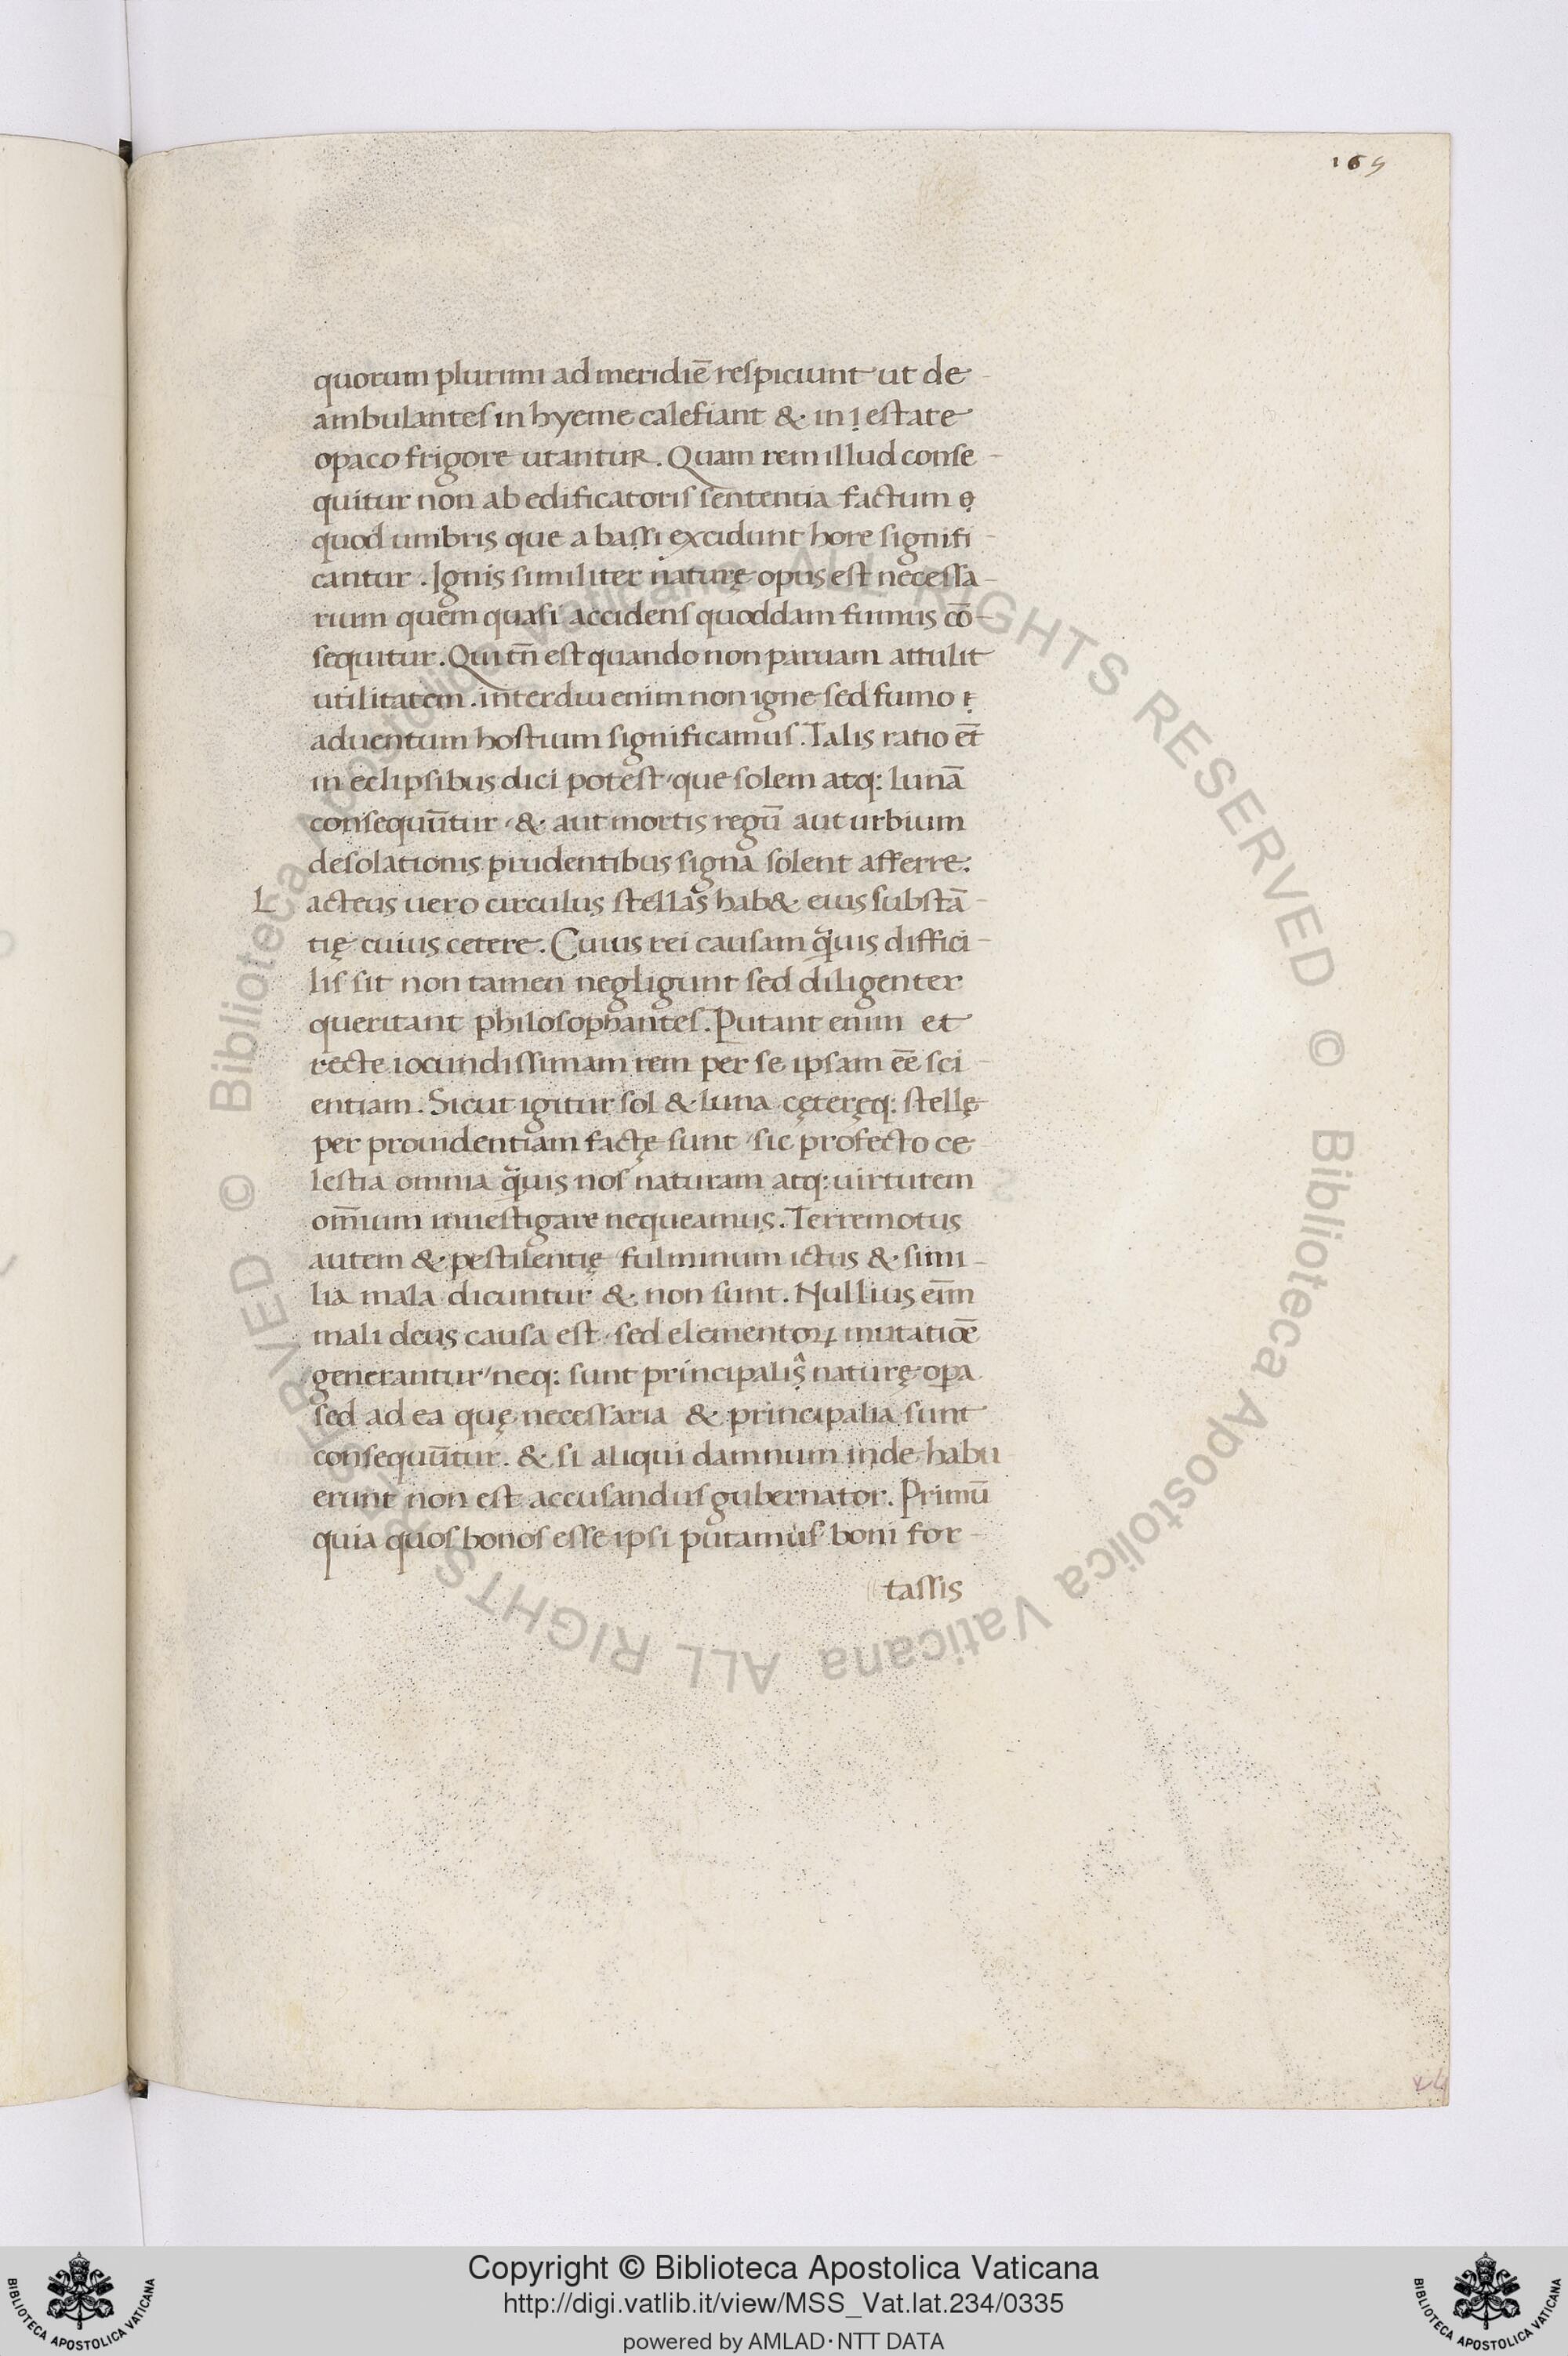 169
quorum plurimi ad meridiē respiciunt ut de-
ambulantes in hyeme calefiant &. in estate
opaco frigore utantur. Quam rem illud conse-
quitur non ab edificatoris sententia factum
quod umbris que a bassi excidunt hore signifi-
cantur. Ignis similiter naturę opus est necessa-
rium quem quasi accidens quoddam fumus cō-
sequitur. Qui tn̄ est quando non paruam attulit
utilitatem. interdiu enim non igne sed fumo
aduentum hostium significamus. Talis ratio et̄
in eclipsibus dici potest, que solem atq: lunā
consequūtur, &. aut mortis regū aut urbium
desolationis prudentibus signa solent afferre.
L acteus uero circulus stellas hab&. eius substā-
tię cuius cetere. Cuius rei causam q̄uis diffici-
lis sit non tamen negligunt sed diligenter
queritant philosophantes. Putant enim et
recte iocundissimam rem per se ipsam eē sci-
entiam. Sicut igitur sol &. luna cęteręq: stellę
per prouidentiam factę sunt, sic profecto ce-
lestia omnia q̄uis nos naturam atq: uirtutem
om̄ium inuestigare nequeamus. Terremotus
autem &. pestilentię fulminum ictus &. simi-
lia mala dicuntur &. non sunt. Nullius eīm
mali deus causa est, sed elementoꝝ mutatiōe
generantur, neq: sunt principalis naturę oꝑa
sed ad ea quę necessaria &. principalia sunt
consequūtur. &. si aliqui damnum inde habu
erunt non est accusandus gubernator. Primū
quia quos bonos esse ipsi putamus boni for-
tassis
© Biblioteca Apostolica Vaticana ALL RIGHTS RESERVED © Biblioteca Apostolica Vaticana ALL RIGHTS RESERVED
Copyright © Biblioteca Apostolica Vaticana
http://digi.vatlib.it/view/MSS_Vat.lat.234/0335
powered by AMLAD·NTT DATA
BIBLIOTECA APOSTOLICA VATICANA
BIBLIOTECA APOSTOLICA VATICANA